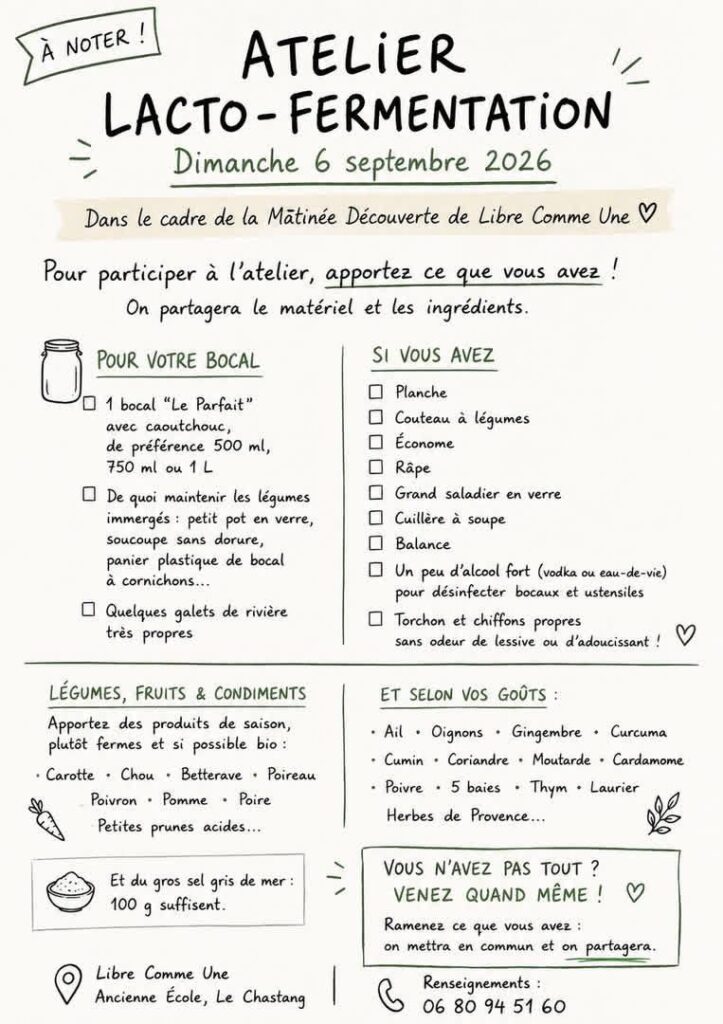 À NOTER !
ATELIER
LACTO-FERMENTATION
Dimanche 6 septembre 2026
Dans le cadre de la Mātinée Découverte de Libre Comme Une ♡
Pour participer à l'atelier, apportez ce que vous avez !
On partagera le matériel et les ingrédients.
POUR VOTRE BOCAL
☐ 1 bocal "Le Parfait"
avec caoutchouc,
de préférence 500 ml,
750 ml ou 1 L
☐ De quoi maintenir les légumes
immergés : petit pot en verre,
soucoupe sans dorure,
panier plastique de bocal
à cornichons...
☐ Quelques galets de rivière
très propres
SI VOUS AVEZ
☐ Planche
☐ Couteau à légumes
☐ Économe
☐ Râpe
☐ Grand saladier en verre
☐ Cuillère à soupe
☐ Balance
☐ Un peu d'alcool fort (vodka ou eau-de-vie)
pour désinfecter bocaux et ustensiles
☐ Torchon et chiffons propres
sans odeur de lessive ou d'adoucissant !
LÉGUMES, FRUITS & CONDIMENTS
Apportez des produits de saison,
plutôt fermes et si possible bio :
• Carotte • Chou • Betterave • Poireau
Poivron • Pomme • Poire
Petites prunes acides...
ET SELON VOS GOÛTS :
• Ail • Oignons • Gingembre • Curcuma
• Cumin • Coriandre • Moutarde • Cardamome
• Poivre • 5 baies • Thym • Laurier
Herbes de Provence...
Et du gros sel gris de mer :
100 g suffisent.
VOUS N'AVEZ PAS TOUT ?
VENEZ QUAND MÊME ! ♡
Ramenez ce que vous avez :
on mettra en commun et on partagera.
Libre Comme Une
Ancienne École, Le Chastang
Renseignements :
06 80 94 51 60